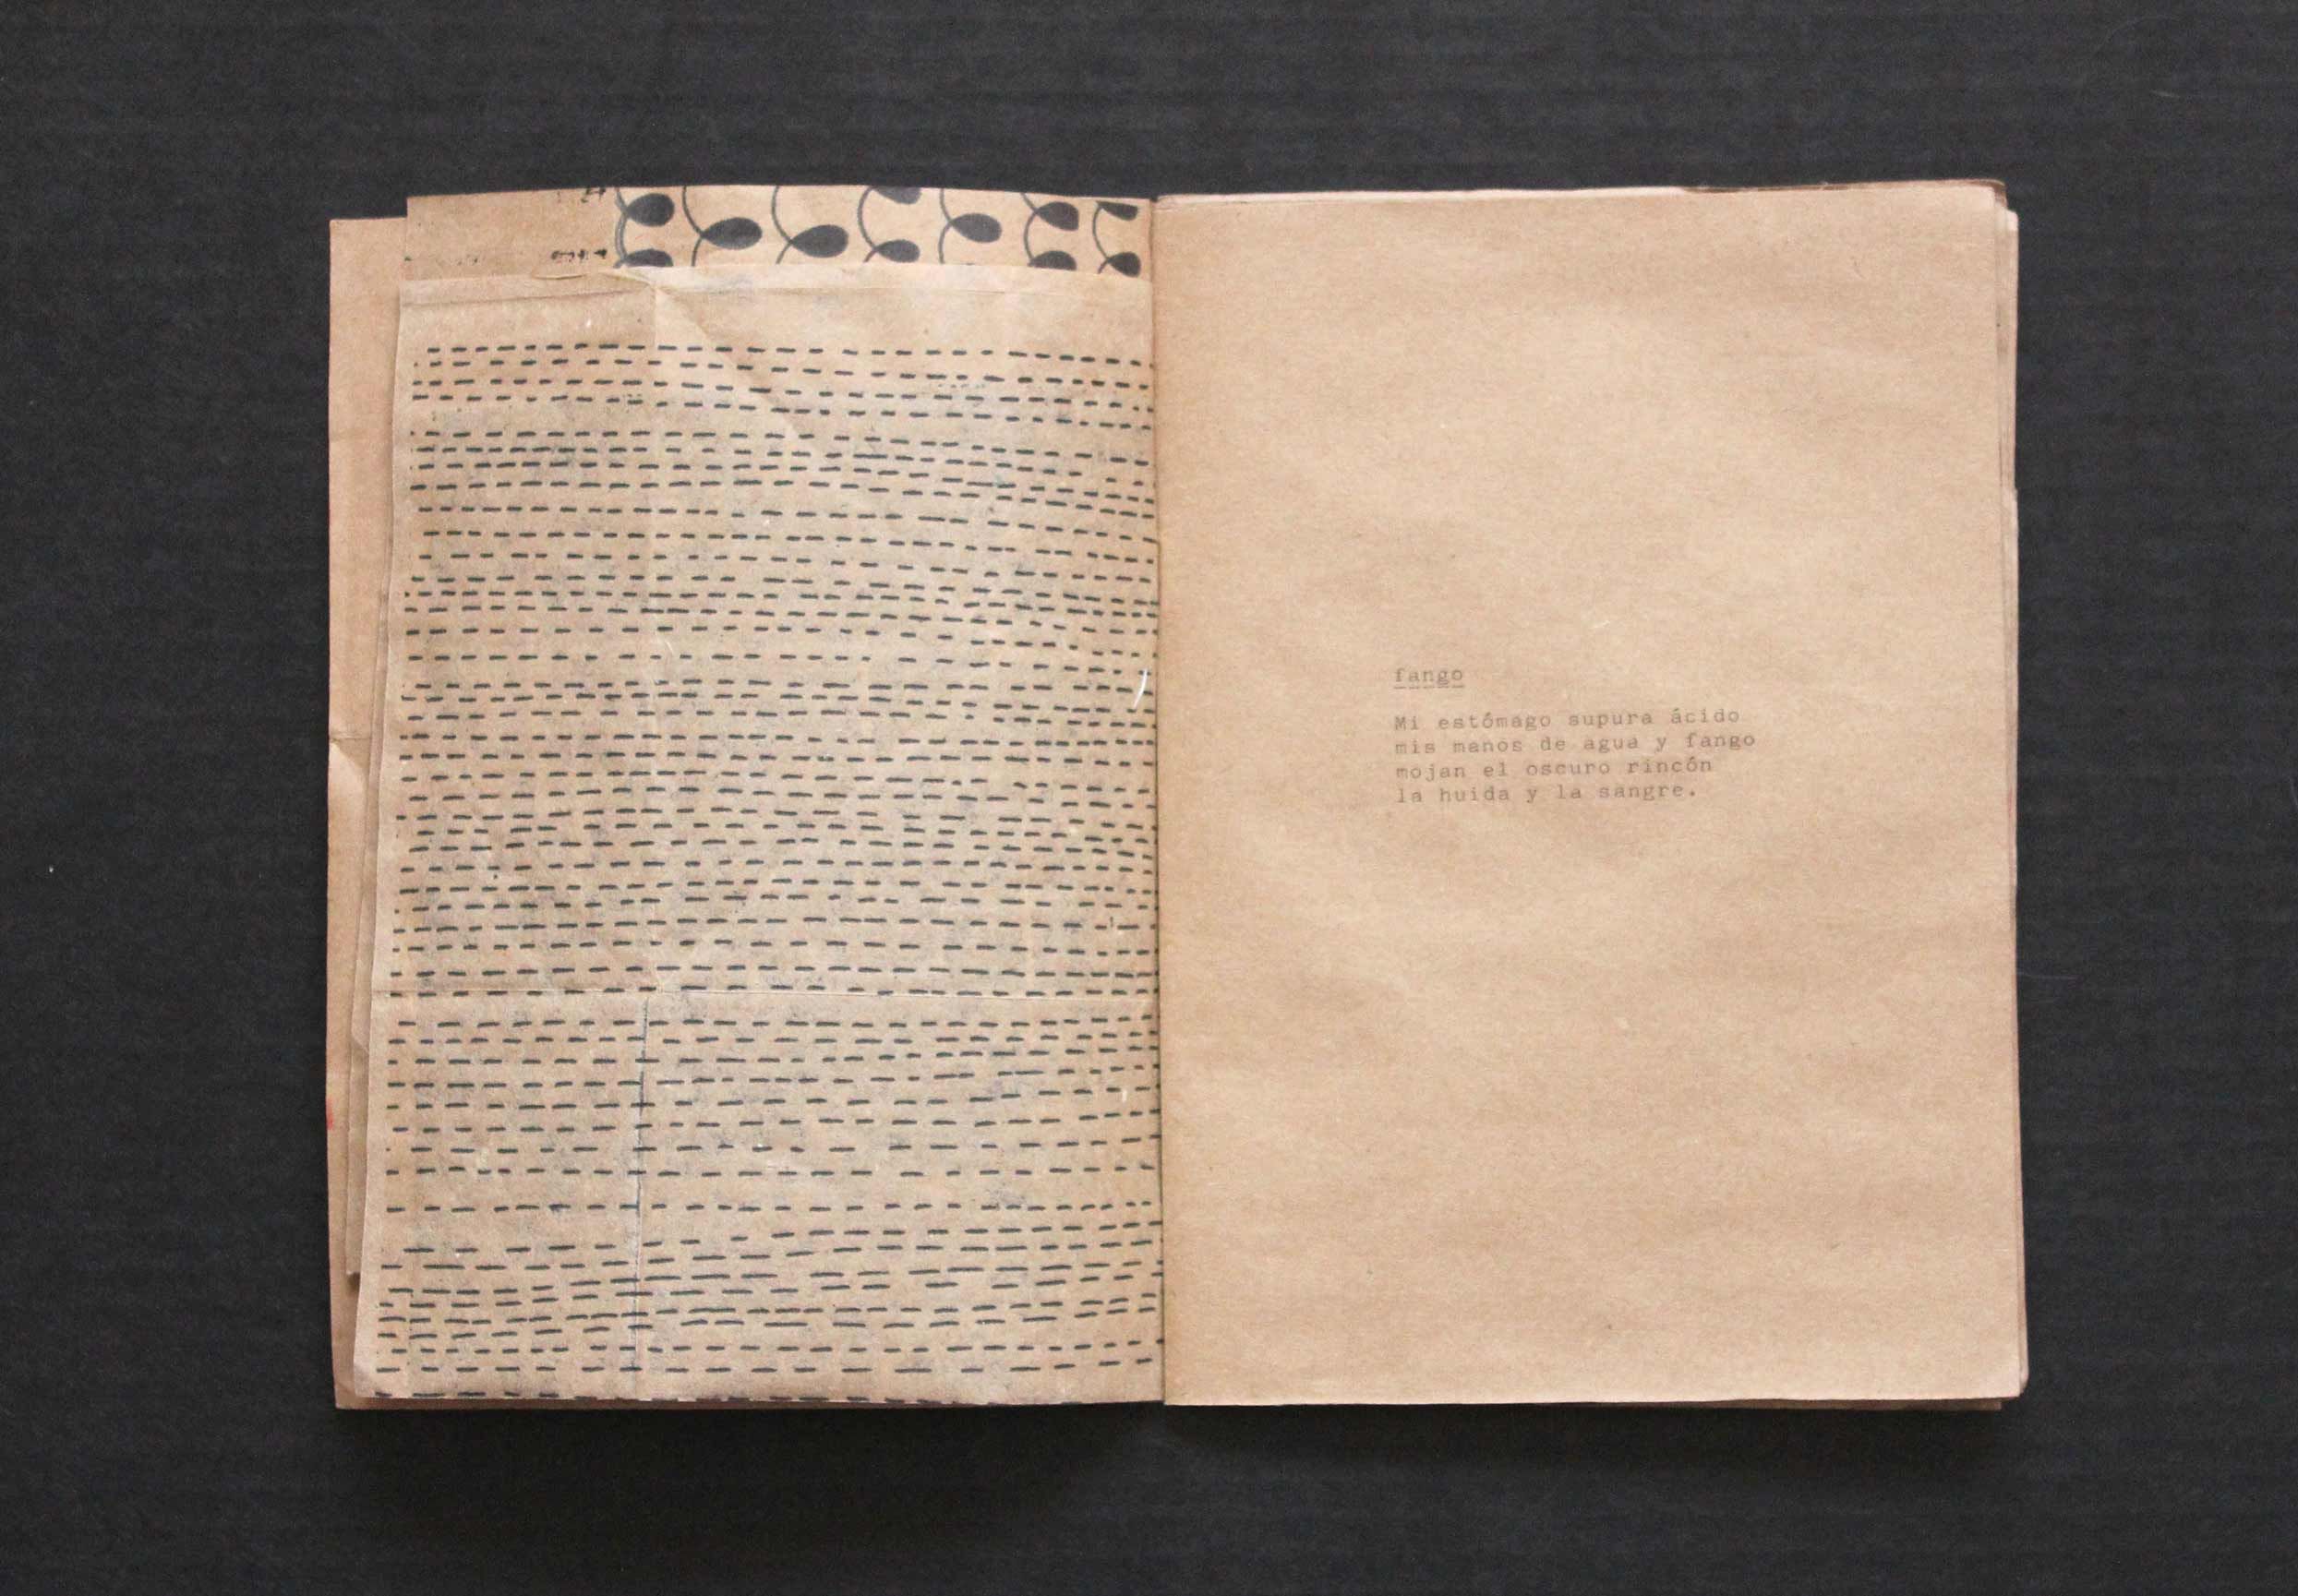 fango
Mi estómago supura ácido
mis manos de agua y fango
mojan el oscuro rincón
la huida y la sangre.